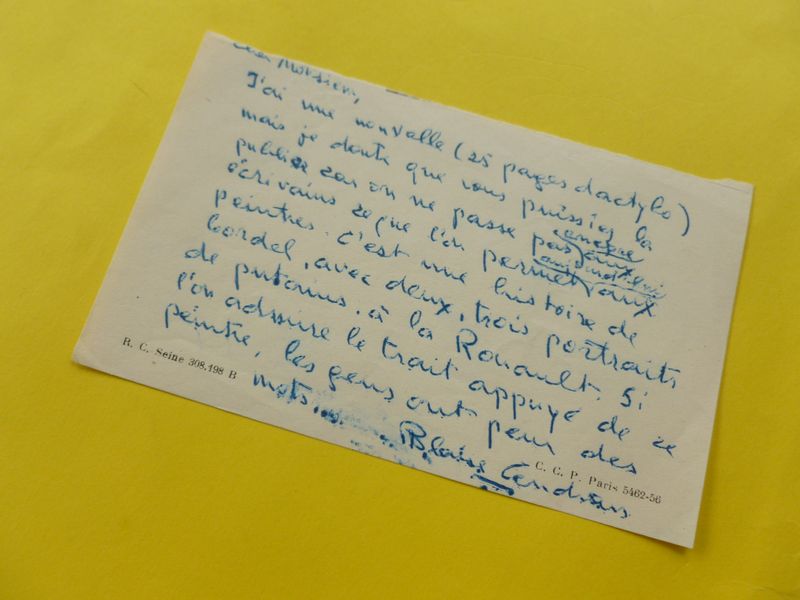 Cher Monsieur,
J'ai une nouvelle (25 pages dactylo)
mais je doute que vous puissiez la
publier car on ne passe pas aux
encore
écrivains ce que l'on permet aux
aujourd'hui
peintres. C'est une histoire de
bordel, avec deux, trois portraits
de putains, à la Rouault. Si
l'on admire le trait appuyé de ce
peintre, les gens ont peur des
mots...
Blaise Cendrars
R. C. Seine 308.198 B
C. C. P. Paris 5462-56